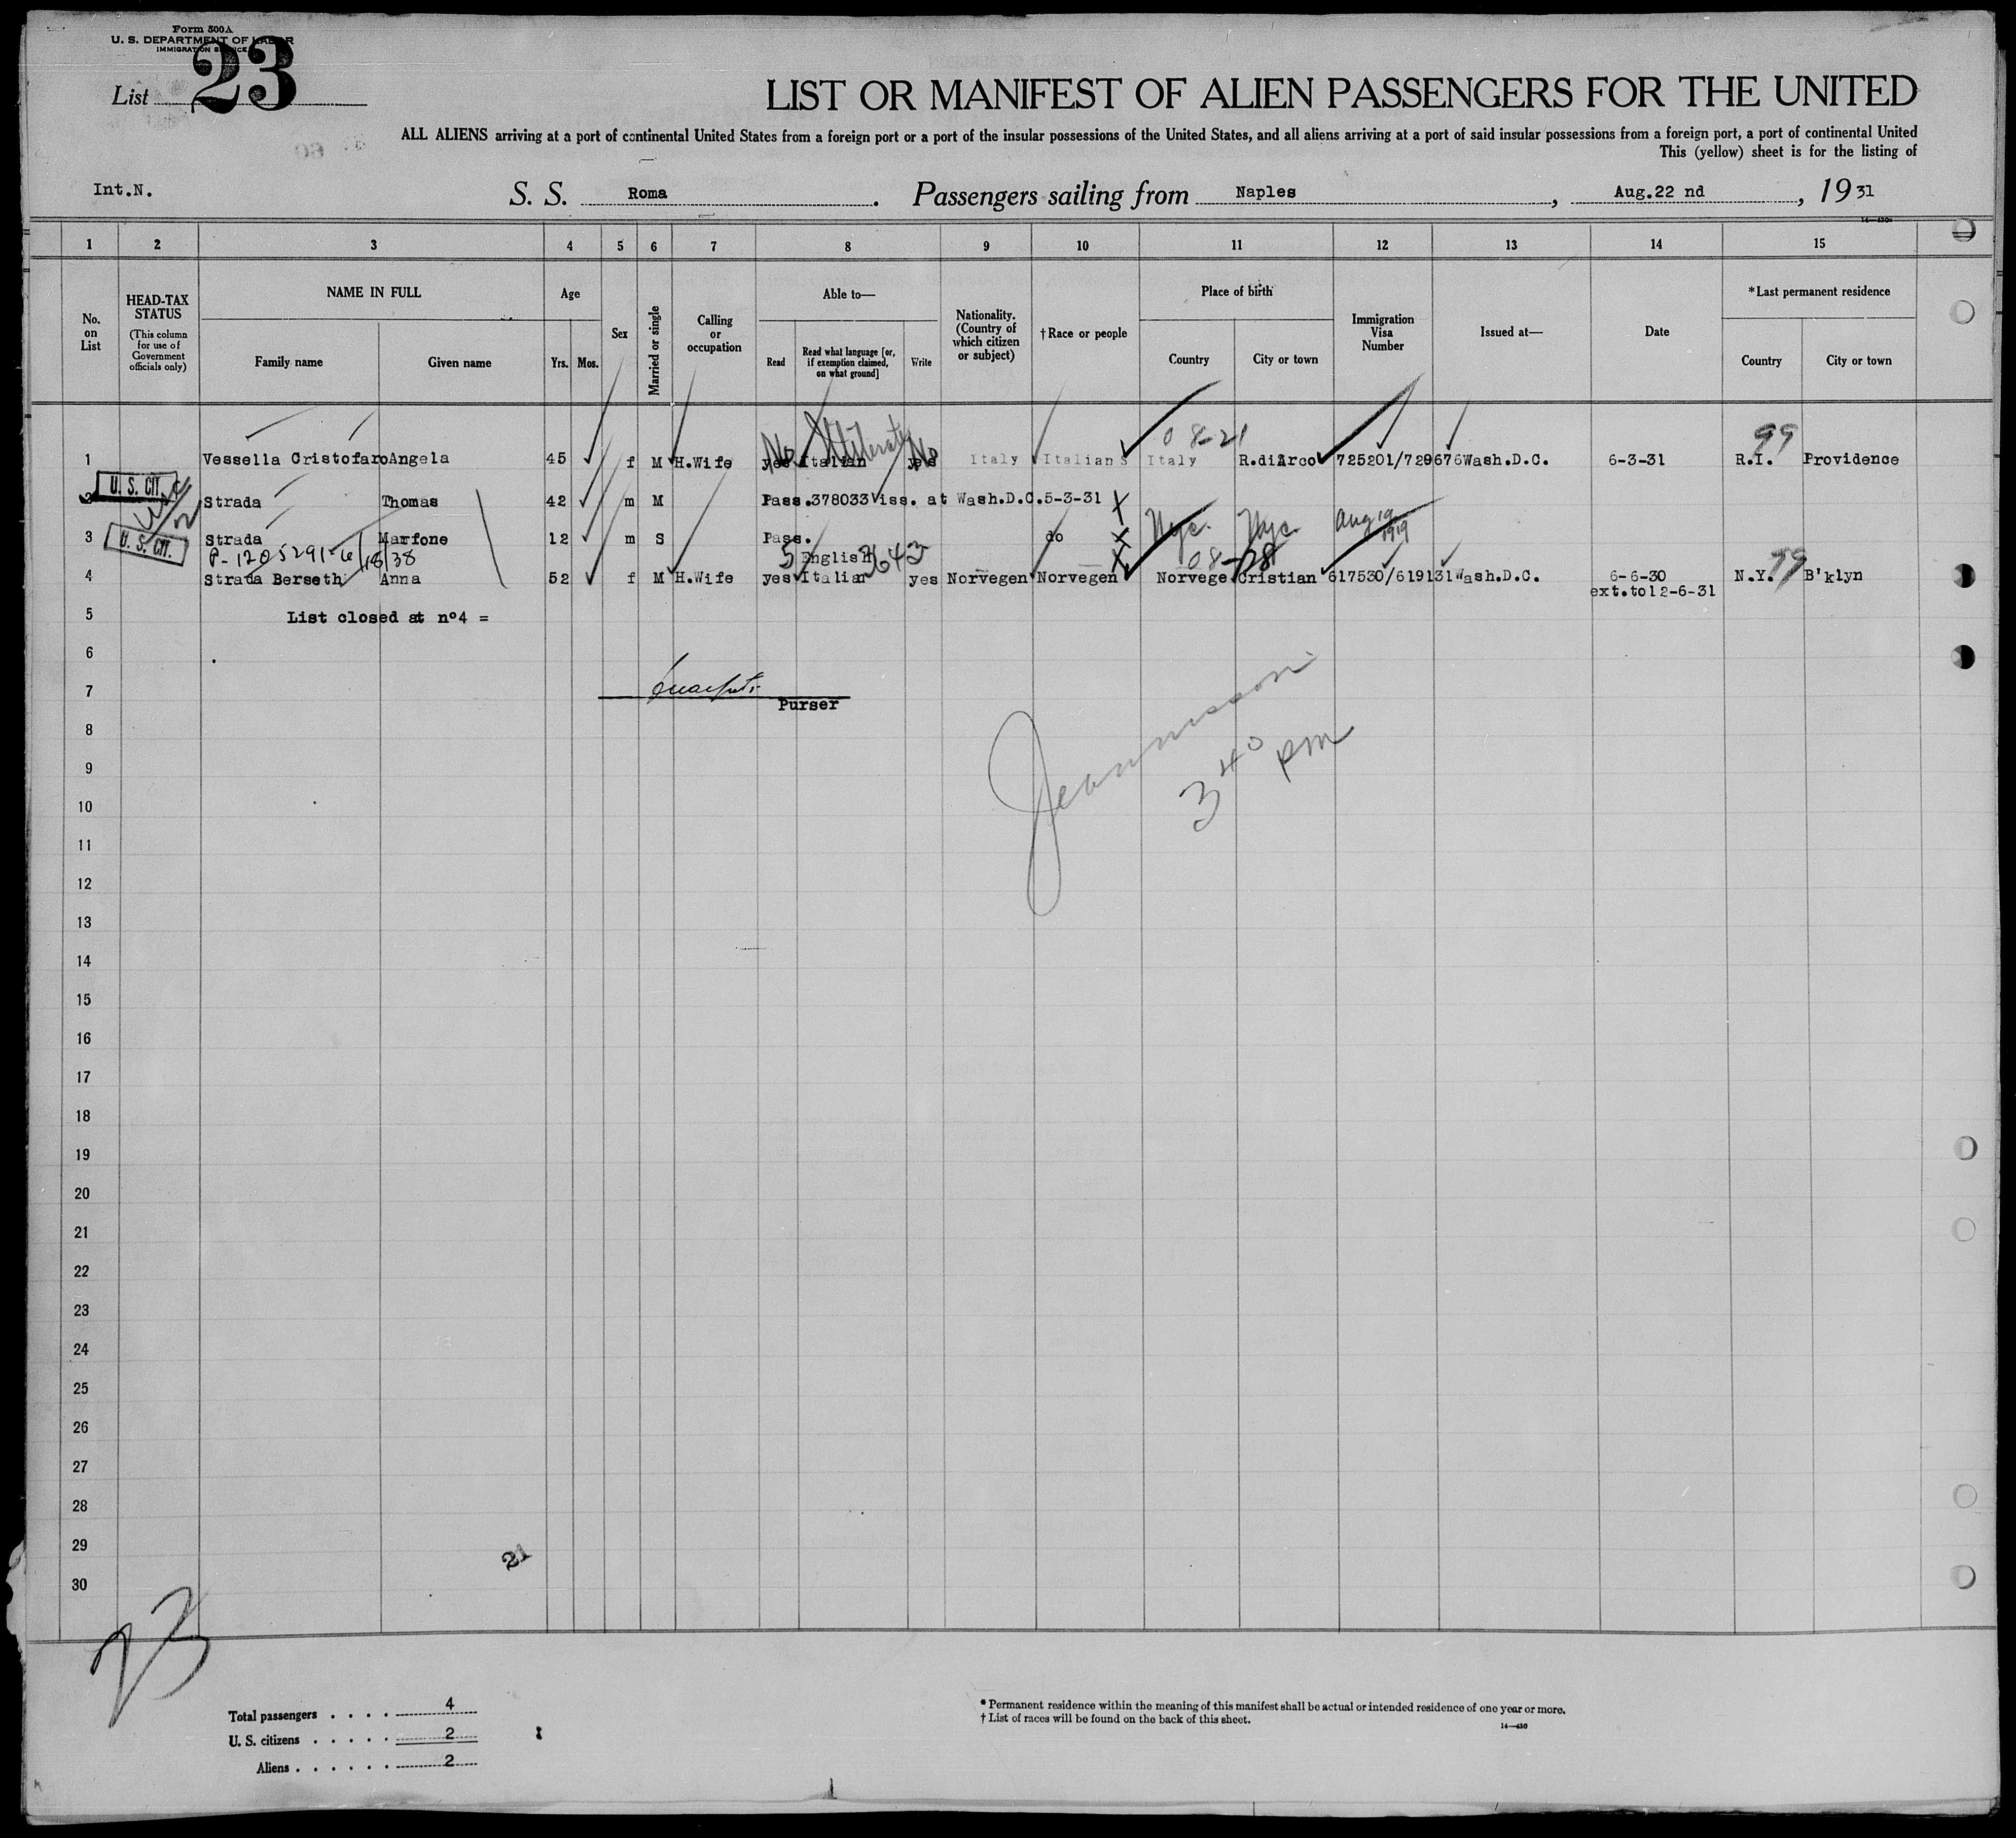 Form 500A
U. S. DEPARTMENT OF LABOR
IMMIGRATION SERVICE
List 23
LIST OR MANIFEST OF ALIEN PASSENGERS FOR THE UNITED
ALL ALIENS arriving at a port of continental United States from a foreign port or a port of the insular possessions of the United States, and all aliens arriving at a port of said insular possessions from a foreign port, a port of continental United
This (yellow) sheet is for the listing of
Int.N. S. S. Roma. Passengers sailing from Naples, Aug.22 nd, 1931
14—430
1 2 3 4 5 6 7 8 9 10 11 12 13 14 15
No. on List
HEAD-TAX STATUS
(This column for use of Government officials only)
NAME IN FULL
Family name
Given name
Age
Yrs. Mos.
Sex
Married or single
Calling or occupation
Able to—
Read
Read what language [or, if exemption claimed, on what ground]
Write
Nationality. (Country of which citizen or subject)
† Race or people
Place of birth
Country
City or town
Immigration Visa Number
Issued at—
Date
*Last permanent residence
Country
City or town
No Illiterate No 08-21 99
1 Vessella Cristofaro Angela 45 f M H.Wife yes Italian yes Italy Italian S Italy R.diArco 725201/729676 Wash.D.C. 6-3-31 R.I. Providence
U. S. CIT.
2 Strada Thomas 42 m M Pass.378033 iss. at Wash.D.C.5-3-31 X
Nyc. Nyc. Aug 19 1919
3 Strada Marfone 12 m S Pass. do X
U. S. CIT.
P-1205291-6/18/38 5 English 3643 X 08-28 99
4 Strada Berseth Anna 52 f M H.Wife yes Italian yes Norvegen Norvegen Norvege Cristian 617530/619131 Wash.D.C. 6-6-30 N.Y. B'klyn
ext.to12-6-31
5 List closed at n°4 =
6
7
Purser
8
9
3 40 pm
10
11
12
13
14
15
16
17
18
19
20
21
22
23
24
25
26
27
28
29
21
30
23
Total passengers . . . . 4
U. S. citizens . . . . . 2
Aliens . . . . . . 2
* Permanent residence within the meaning of this manifest shall be actual or intended residence of one year or more.
† List of races will be found on the back of this sheet.
14—430